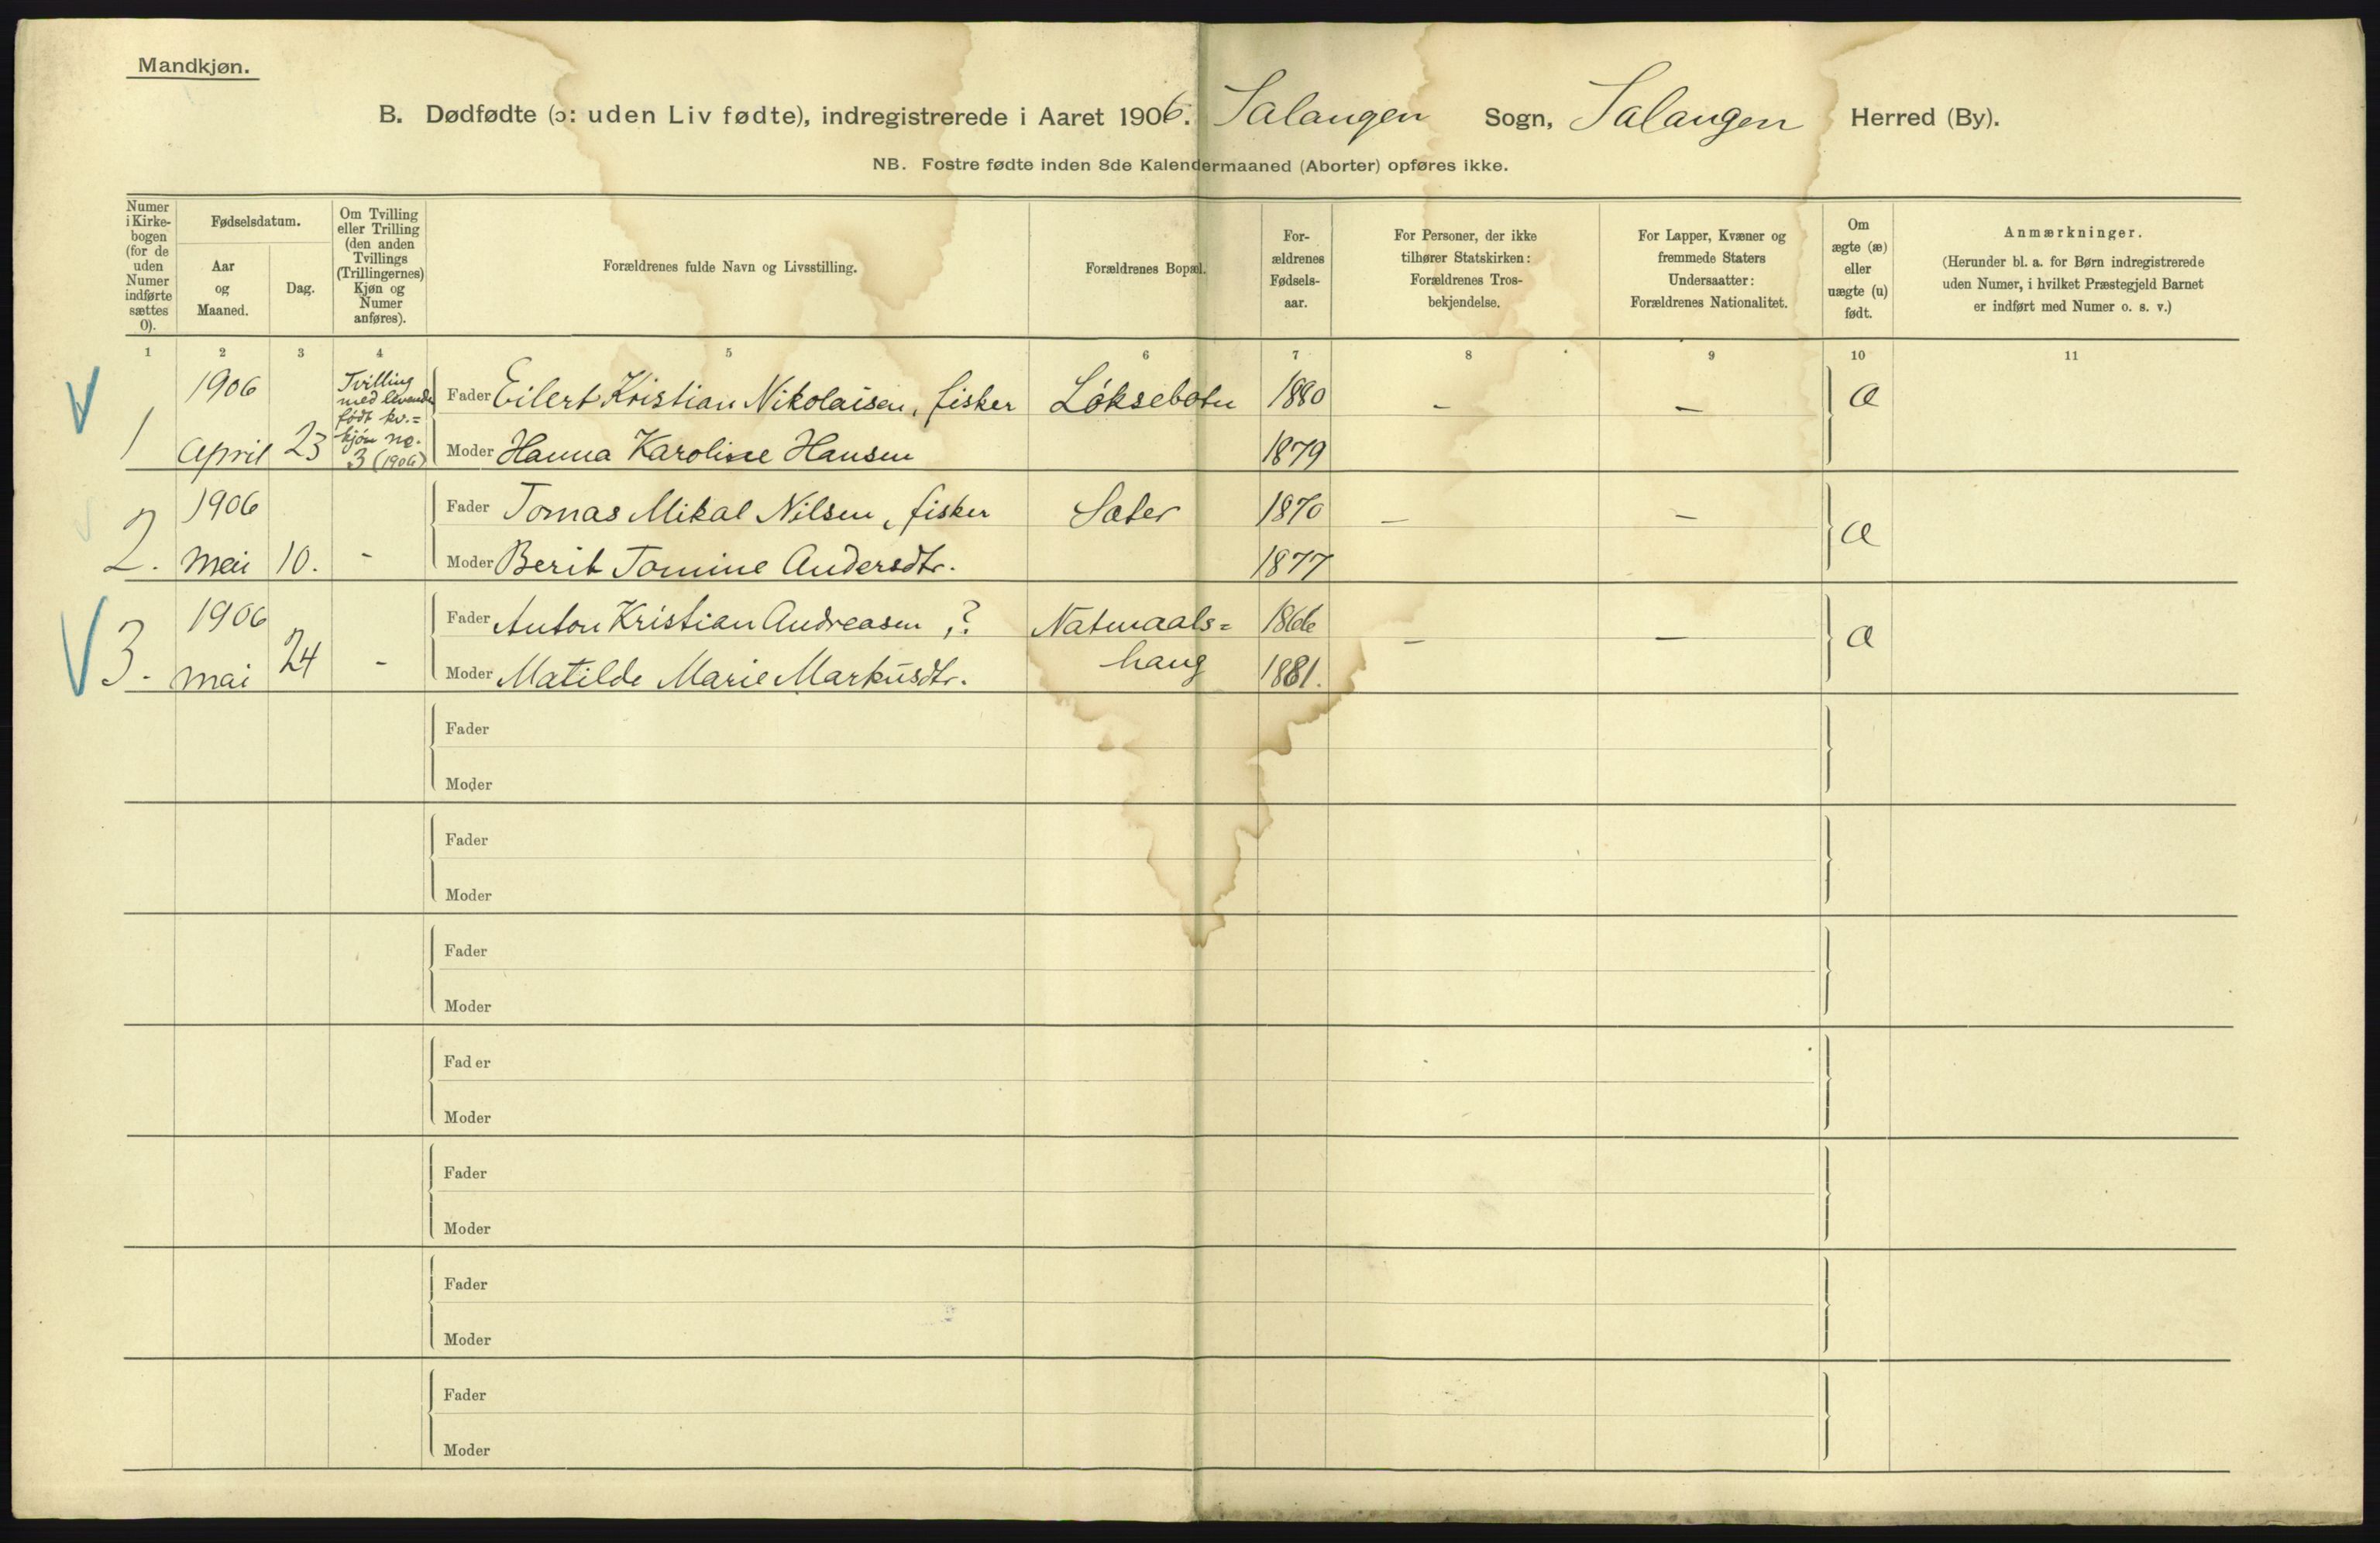 Mandkjøn.
B. Dødfødte (ɔ: uden Liv fødte), indregistrerede i Aaret 1906. Salangen Sogn, Salangen Herred (By).
NB. Fostre fødte inden 8de Kalendermaaned (Aborter) opføres ikke.
Numer
i Kirke-
bogen
(for de
uden
Numer
indførte
sættes
0).
Fødselsdatum.
Aar
og
Maaned.
Dag.
Om Tvilling
eller Trilling
(den anden
Tvillings
(Trillingernes)
Kjøn og
Numer
anføres).
Forældrenes fulde Navn og Livsstilling.
Forældrenes Bopæl.
For-
ældrenes
Fødsels-
aar.
For Personer, der ikke
tilhører Statskirken:
Forældrenes Tros-
bekjendelse.
For Lapper, Kvæner og
fremmede Staters
Undersaatter:
Forældrenes Nationalitet.
Om
ægte (æ)
eller
uægte (u)
født.
Anmærkninger.
(Herunder bl. a. for Børn indregistrerede
uden Numer, i hvilket Præstegjeld Barnet
er indført med Numer o. s. v.)
1 2 3 4 5 6 7 8 9 10 11
V
1
1906
April 23
Tvilling
med levende
født kv.=
kjøn no.
3 (1906)
Fader Eilert Kristian Nikolaisen, fisker Løksebotn 1880 – – æ
Moder Hanna Karoline Hansen 1879
2.
1906
Mai 10. -
Fader Tomas Mikal Nilsen, fisker Sæter 1870 – – æ
Moder Berit Tomine Andersdtr. 1877
V
3.
1906
Mai 24 -
Fader Anton Kristian Andreasen, ? 1866 – – æ
haug
Moder Matilde Marie Markusdtr. 1881.
Fader
Moder
Fader
Moder
Fader
Moder
Fader
Moder
Fader
Moder
Fader
Moder
Fader
Moder